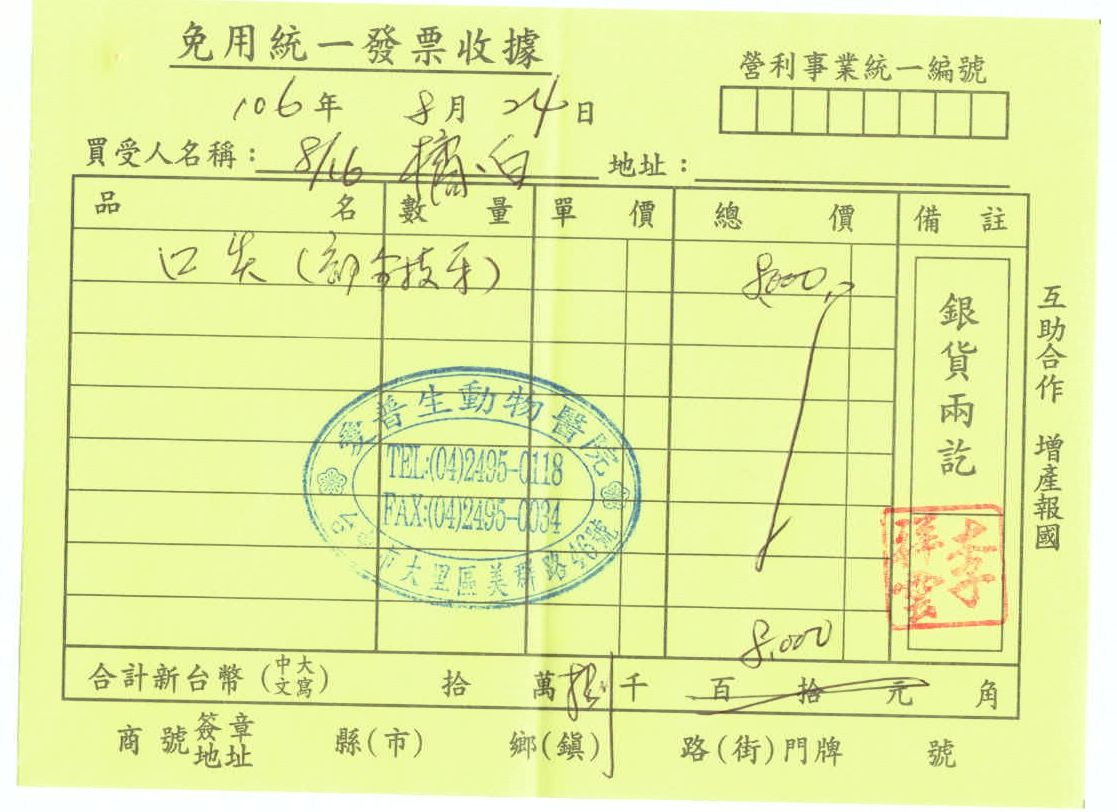 免用統一發票收據
營利事業統一編號
106年 8月 24日
買受人名稱: 8/16 橘白 地址:
品名 數量 單價 總價 備註
口炎(部分拔牙) 8000
銀貨兩訖
互助合作 增產報國
普生動物醫院
TEL:(04)2495-0118
FAX:(04)2495-0034
市大里區美群路46號
李祥雲
8,000
合計新台幣(中文大寫) 拾 萬 捌 千 百 拾 元 角
商號簽章地址 縣(市) 鄉(鎮) 路(街)門牌 號